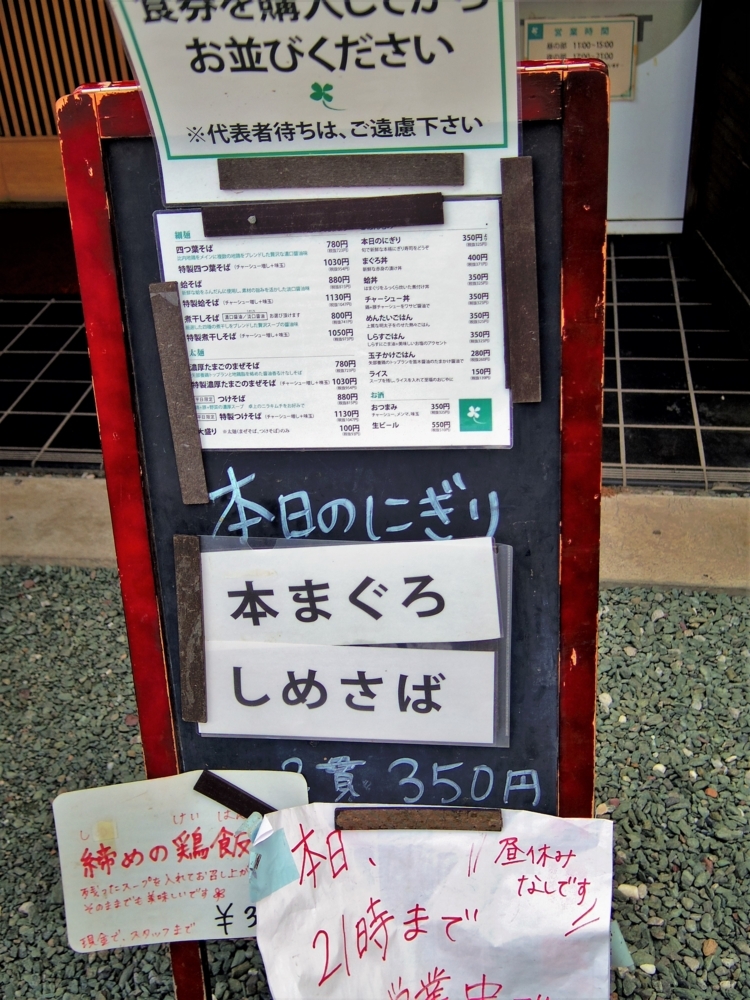 食券を購入してから
お並びください
※代表者待ちは、ご遠慮下さい
営業時間
昼の部 11:00~15:00
夜の部 17:00~21:00
細麺
四つ葉そば 780円
特製四つ葉そば (チャーシュー増し+味玉) 1030円
蛤そば 880円
特製蛤そば (チャーシュー増し+味玉) 1130円
煮干しそば 800円
特製煮干しそば (チャーシュー増し+味玉) 1050円
太麺
濃厚たまごのまぜそば 780円
特製濃厚たまごのまぜそば (チャーシュー増し+味玉) 1030円
つけそば 880円
特製つけそば (チャーシュー増し+味玉) 1130円
大盛り ※太麺(まぜそば、つけそば)のみ 100円
本日のにぎり 350円
まぐろ丼 400円
蛤丼 350円
チャーシュー丼 350円
めんたいごはん 350円
しらすごはん 350円
玉子かけごはん 280円
ライス 150円
お酒
おつまみ 350円
チャーシュー、メンマ、味玉
生ビール 550円
本日のにぎり
本まぐろ
しめさば
2貫 350円
けい
締めの鶏飯
残ったスープを入れてお召し上が
そのままでも美味しいです
¥3
現金で、スタッフまで
本日、
昼休み
なしです
21時まで
営業中